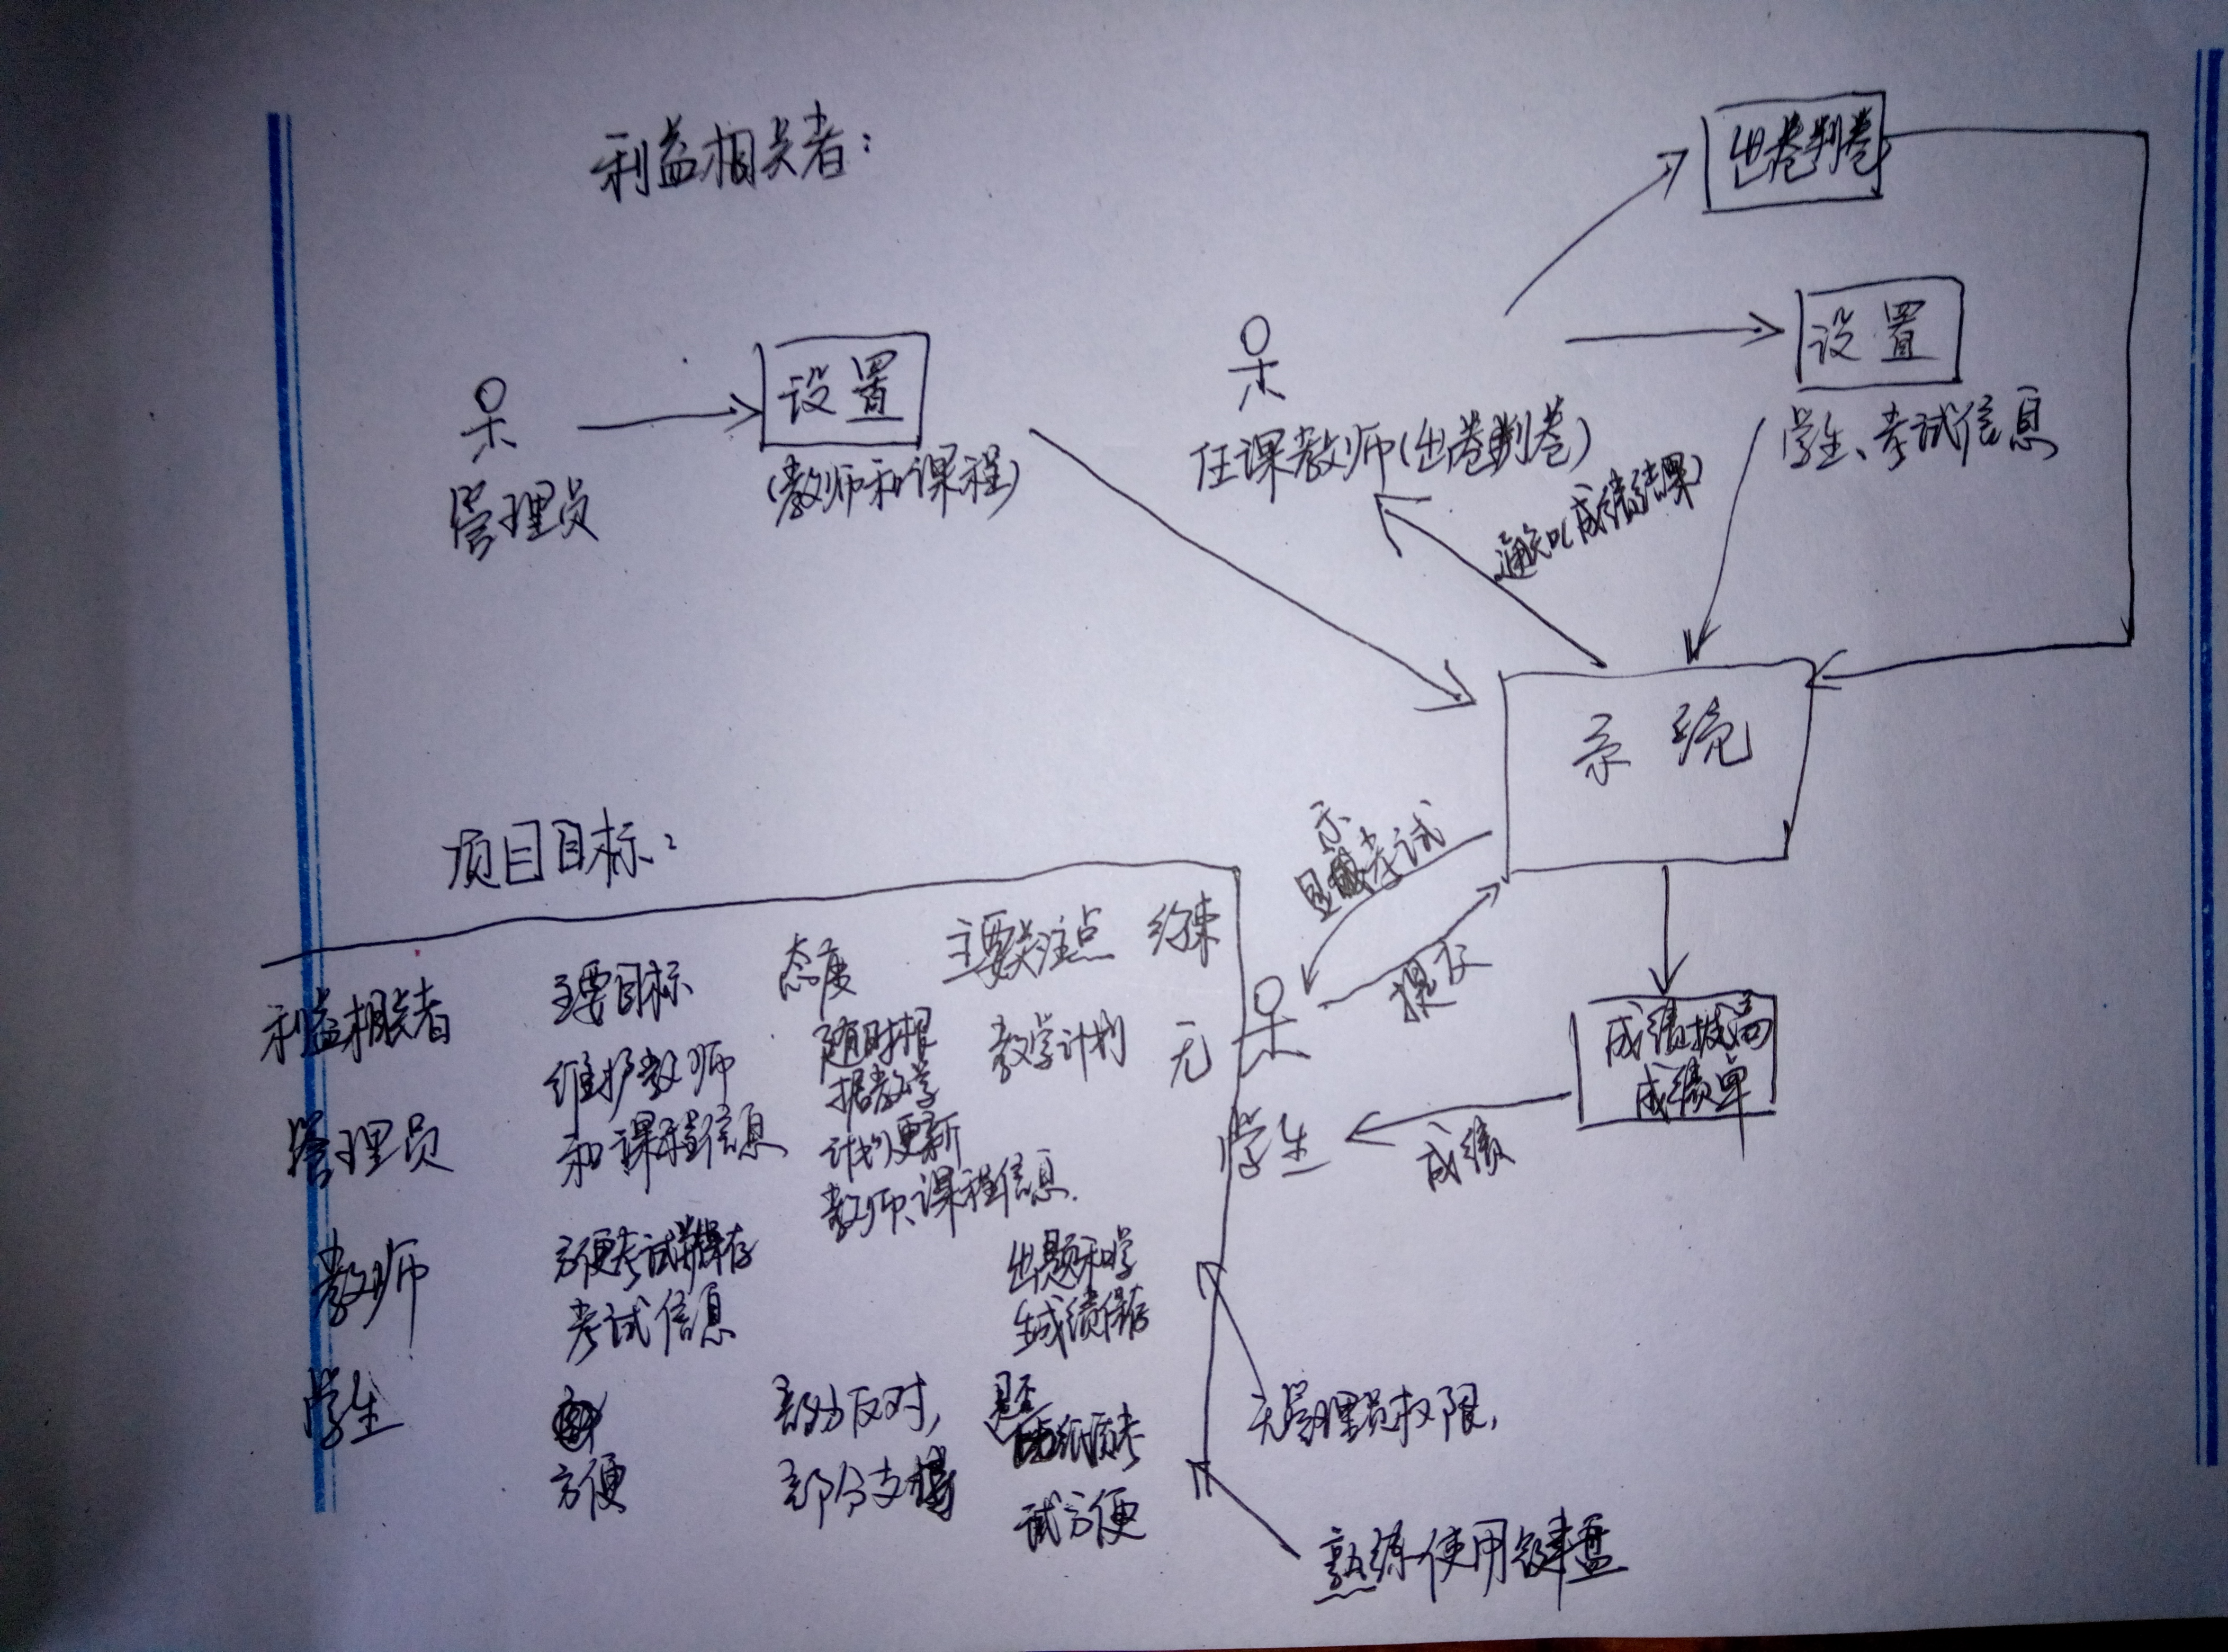 利益相关者:
出卷判卷
设置
学生、考试信息
管理员
设置
(教师和课程)
任课教师(出卷判卷)
通知(成绩结果)
系统
显示考试
提交
成绩
成绩单
成绩
学生
项目目标:
利益相关者 主要目标 态度 主要关注点 约束
管理员 维护教师 随时根 教学计划 无
和课程信息 据教学
计划更新
教师、课程信息.
教师 方便考试 出题和学
考试信息 生成绩保存
学生 方便 部分反对, 是否
部分支持 纸质考
试方便
无管理员权限,
熟练使用键盘